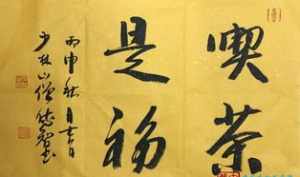 喫茶
是福
丙申秋月吉日
少林山僧德建书